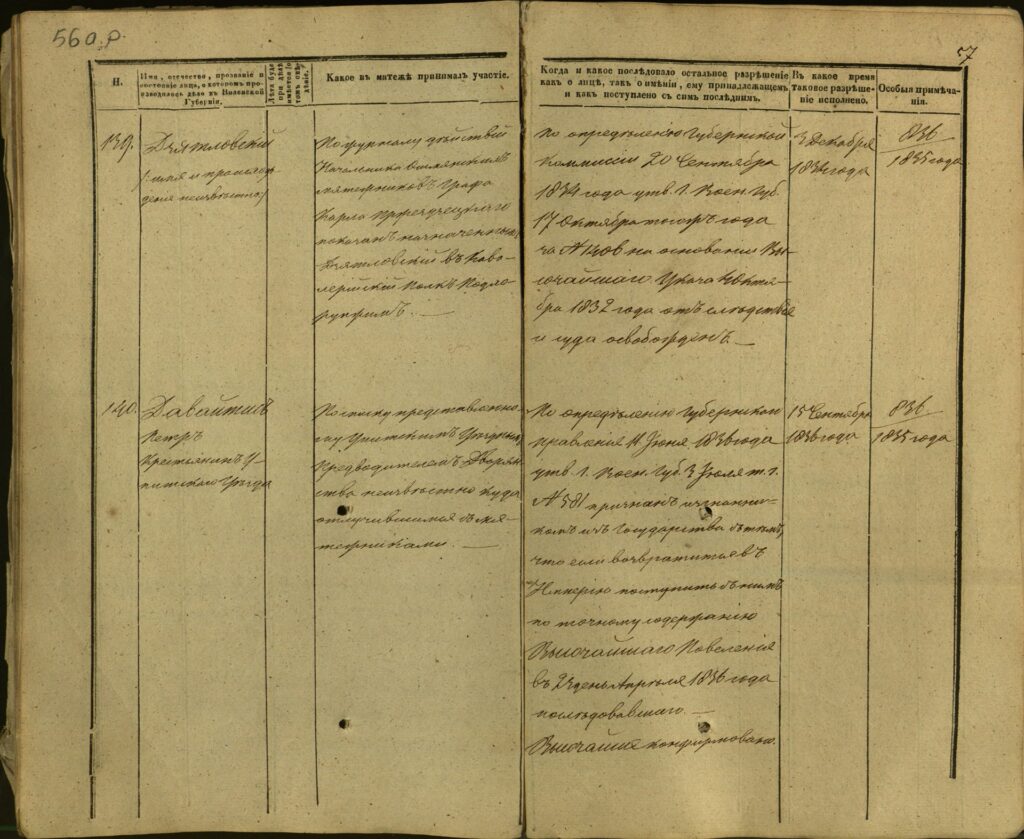 56 о.р.
57
Н.
Имя, отечество, прозваніе и
состояніе лица, о которомъ про-
изводилось дѣло въ Виленской
Губерніи.
Какое въ матежѣ принималъ участіе.
Когда и какое послѣдовало остальное разрѣшеніе
какъ о лицѣ, такъ о имѣніи, ему принадлежащемъ
и какъ поступлено съ симъ послѣднимъ.
Въ какое время
таковое разрѣше-
ніе исполнено.
Особыя примѣча-
нія.
139.
Дзятловскій
/: имя и происхож-
деніе неизвѣстно:/
По журналу дѣйствій
Начальника Ошмянскихъ
мятежниковъ Графа
Карла Пржездзецкаго
показанъ назначеннымъ
Дзятловскій въ Кава-
лерійскій Полкъ Подхо-
рунжимъ. —
По опредѣленію Губернской
Коммисіи 20 Сентября
1834 года утв. Г. Воен. Губ.
17 Октября того жъ года
за № 1406 на основаніи Вы-
сочайшаго Указа 4 Октя-
бря 1832 года отъ слѣдствія
и суда освобожденъ. —
3 Декабря
1834 года
836
1835 года
140.
Давайтисъ
Петръ
Крестьянинъ У-
питскаго Уѣзда
По списку представленно-
му Упитскимъ Уѣзднымъ
Предводителемъ Дворян-
ства неизвѣстно куда
отлучившимся съ мя-
тежниками. —
По опредѣленію Губернскаго
правленія 11 Іюня 1836 года
утв. Г. Воен. Губ. 3 Іюля т. г.
№ 581 признанъ изгнанни-
комъ изъ Государства съ тѣмъ,
что если возвратится въ
Имперію поступить съ нимъ
по точному содержанію
Высочайшаго Повеленія
въ 23 день Апрѣля 1836 года
послѣдовавшаго. —
Высочайше конфирмовано.
15 Сентября
1836 года
836
1835 года